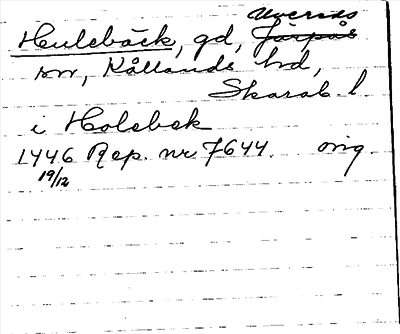 Hulebäck, gd, Järpås Uvereds
sn, Kållands hd,
Skarab. l.
i Holebek
1446 Rep. nr 7644. orig.
19/12